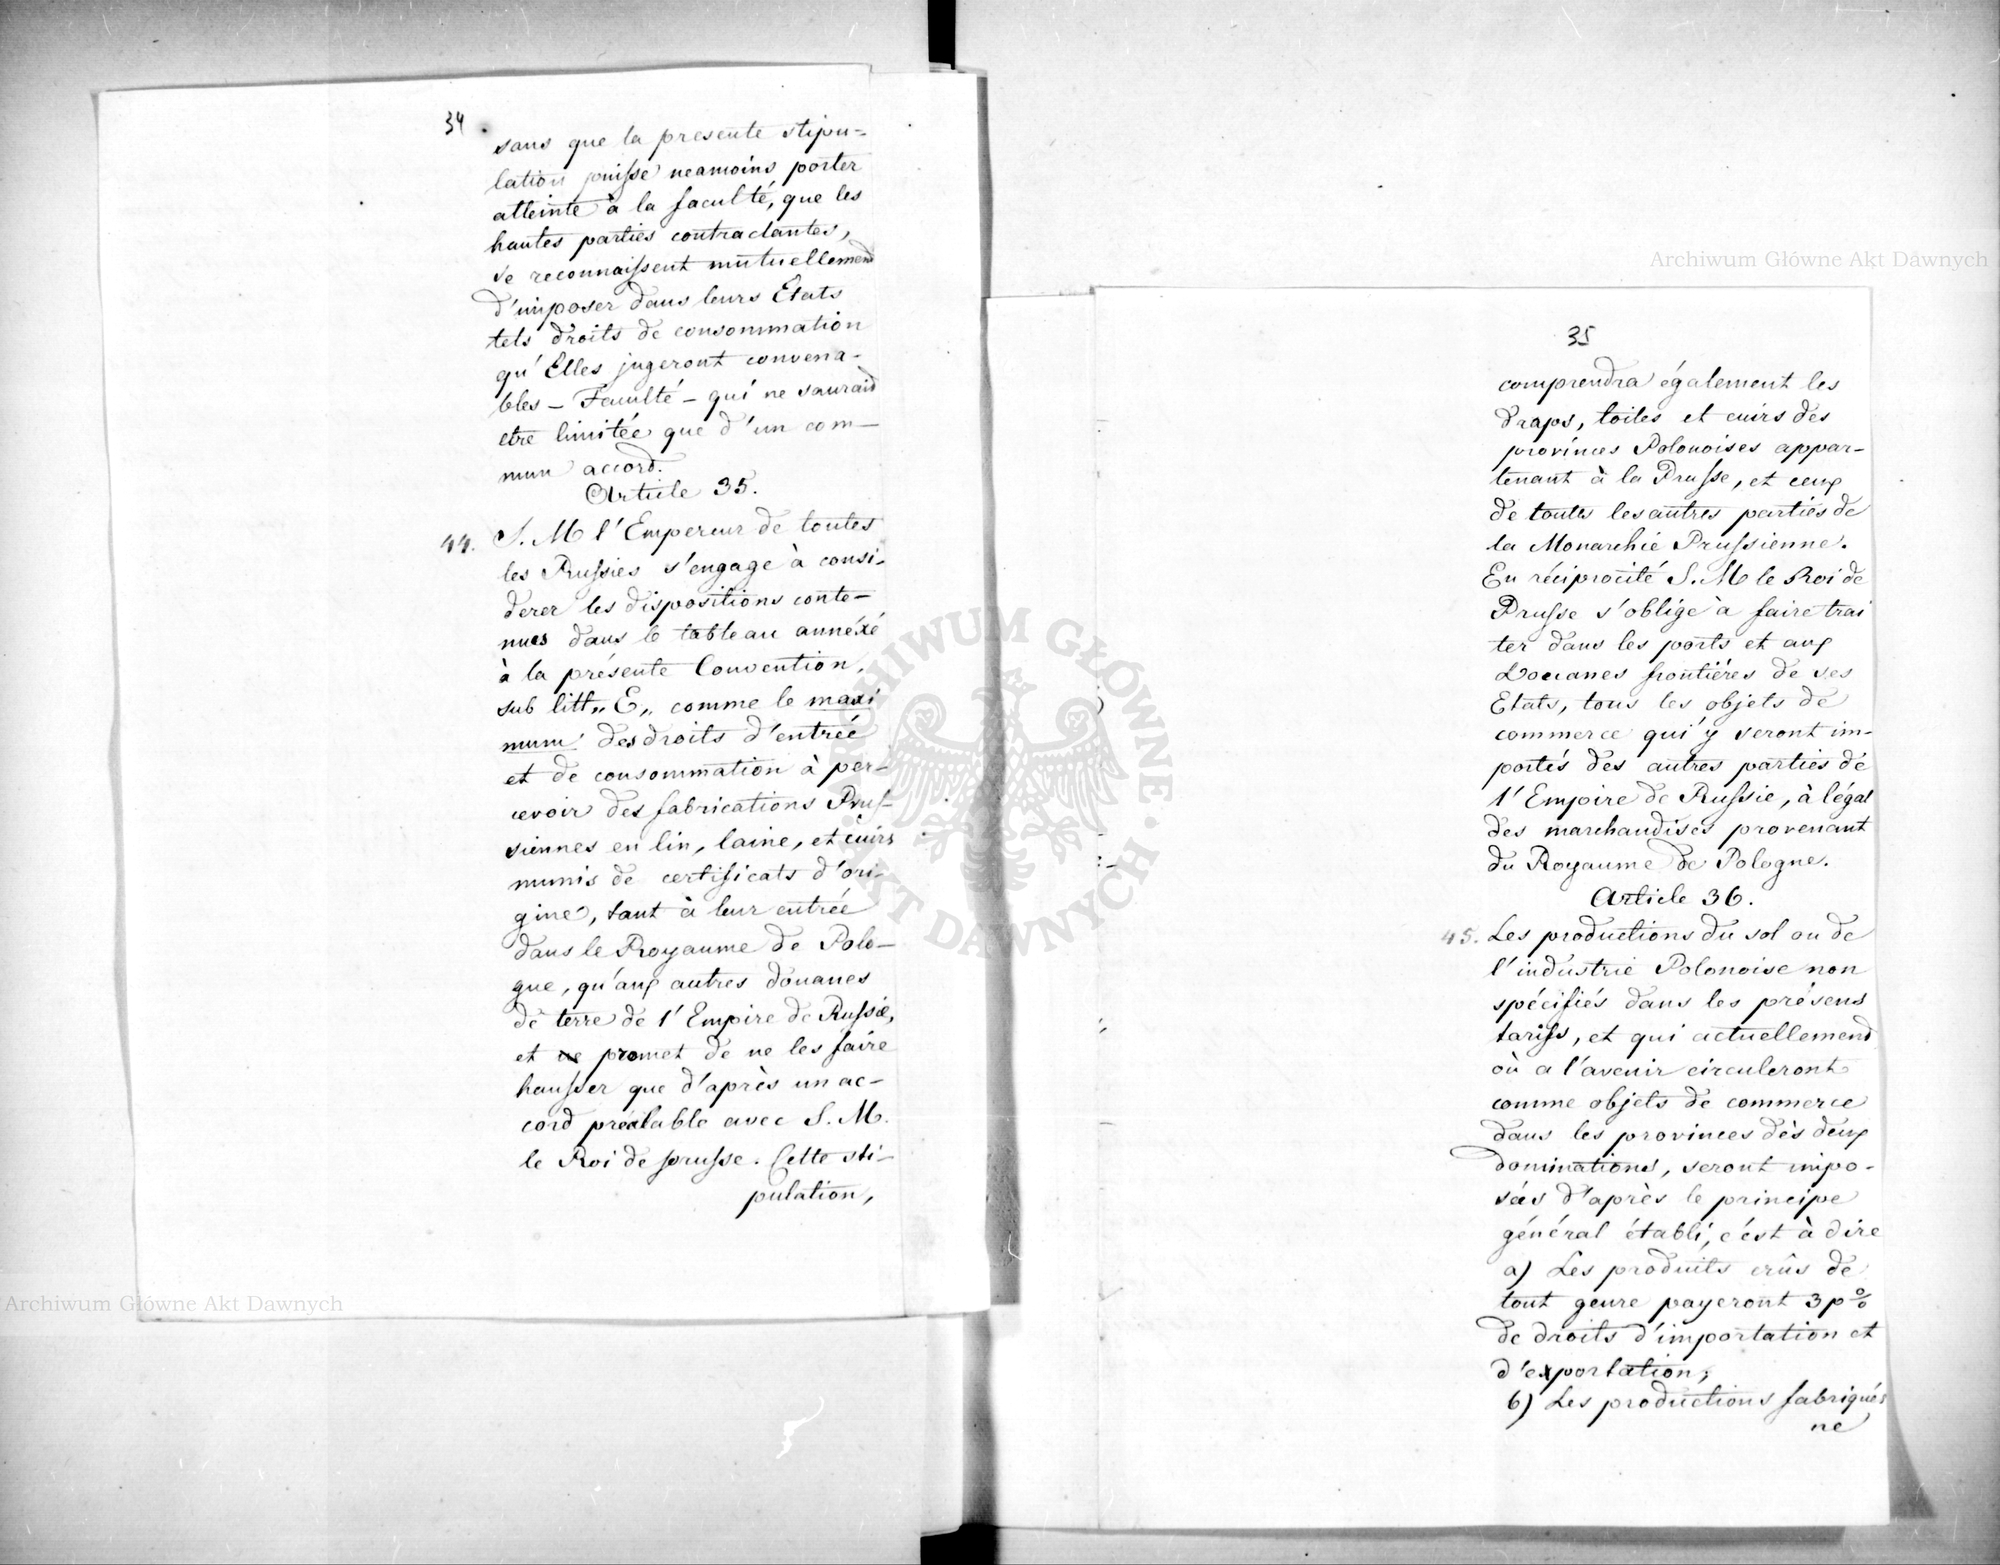 34
sans que la presente stipu-
lation puisse neamoins porter
atteinte à la faculté, que les
hautes parties contractantes,
se reconnaissent mutuellement
d'imposer dans leurs Etats
tels droits de consommation
qu'Elles jugeront convena-
bles - Faculté - qui ne saurait
etre limitée que d'un com-
mun accord.
Article 35.
44. S. M l'Empereur de toutes
les Russies s'engage à consi-
derer les dispositions conte-
nues dans le tableau annéxé
à la présente Convention,
sub litt„ E„ comme le maxi
mum des droits d'entrée
et de consommation à per-
cevoir des fabrications Prus-
siennes en lin, laine, et cuirs
munis de certificats d'ori-
gine, tant à leur entrée
dans le Royaume de Polo-
gne, qu'aux autres douanes
de terre de l'Empire de Russie,
et promet de ne les faire
hausser que d'après un ac-
cord préalable avec S. M.
le Roi de prusse. Cette sti-
pulation,
35
comprendra également les
draps, toiles et cuirs des
provinces Polonoises appar-
tenant à la Prusse, et ceux
de toutes les autres parties de
la Monarchie Prussienne.
En réciprocité S. M le Roi de
Prusse s'oblige à faire trai
ter dans les ports et aux
Douanes frontiéres de ses
Etats, tous les objets de
commerce qui y seront im-
portés des autres parties de
l'Empire de Russie, à légal
des marchandises provenant
du Royaume de Pologne.
Article 36.
45. Les productions du sol ou de
l'industrie Polonoise non
spécifiés dans les présens
tariffs, et qui actuellement
où a l'avenir circuleront
comme objets de commerce
dans les provinces dès deux
dominations, seront impo-
sées d'après le principe
général établi, c'ést à dire
a) Les produits crûs de
tout genre payeront 3 p %
de droits d'importation et
d'exportation;
b) Les productions fabriqués
ne
Archiwum Główne Akt Dawnych
Archiwum Główne Akt Dawnych
ARCHIWUM GŁÓWNE AKT DAWNYCH